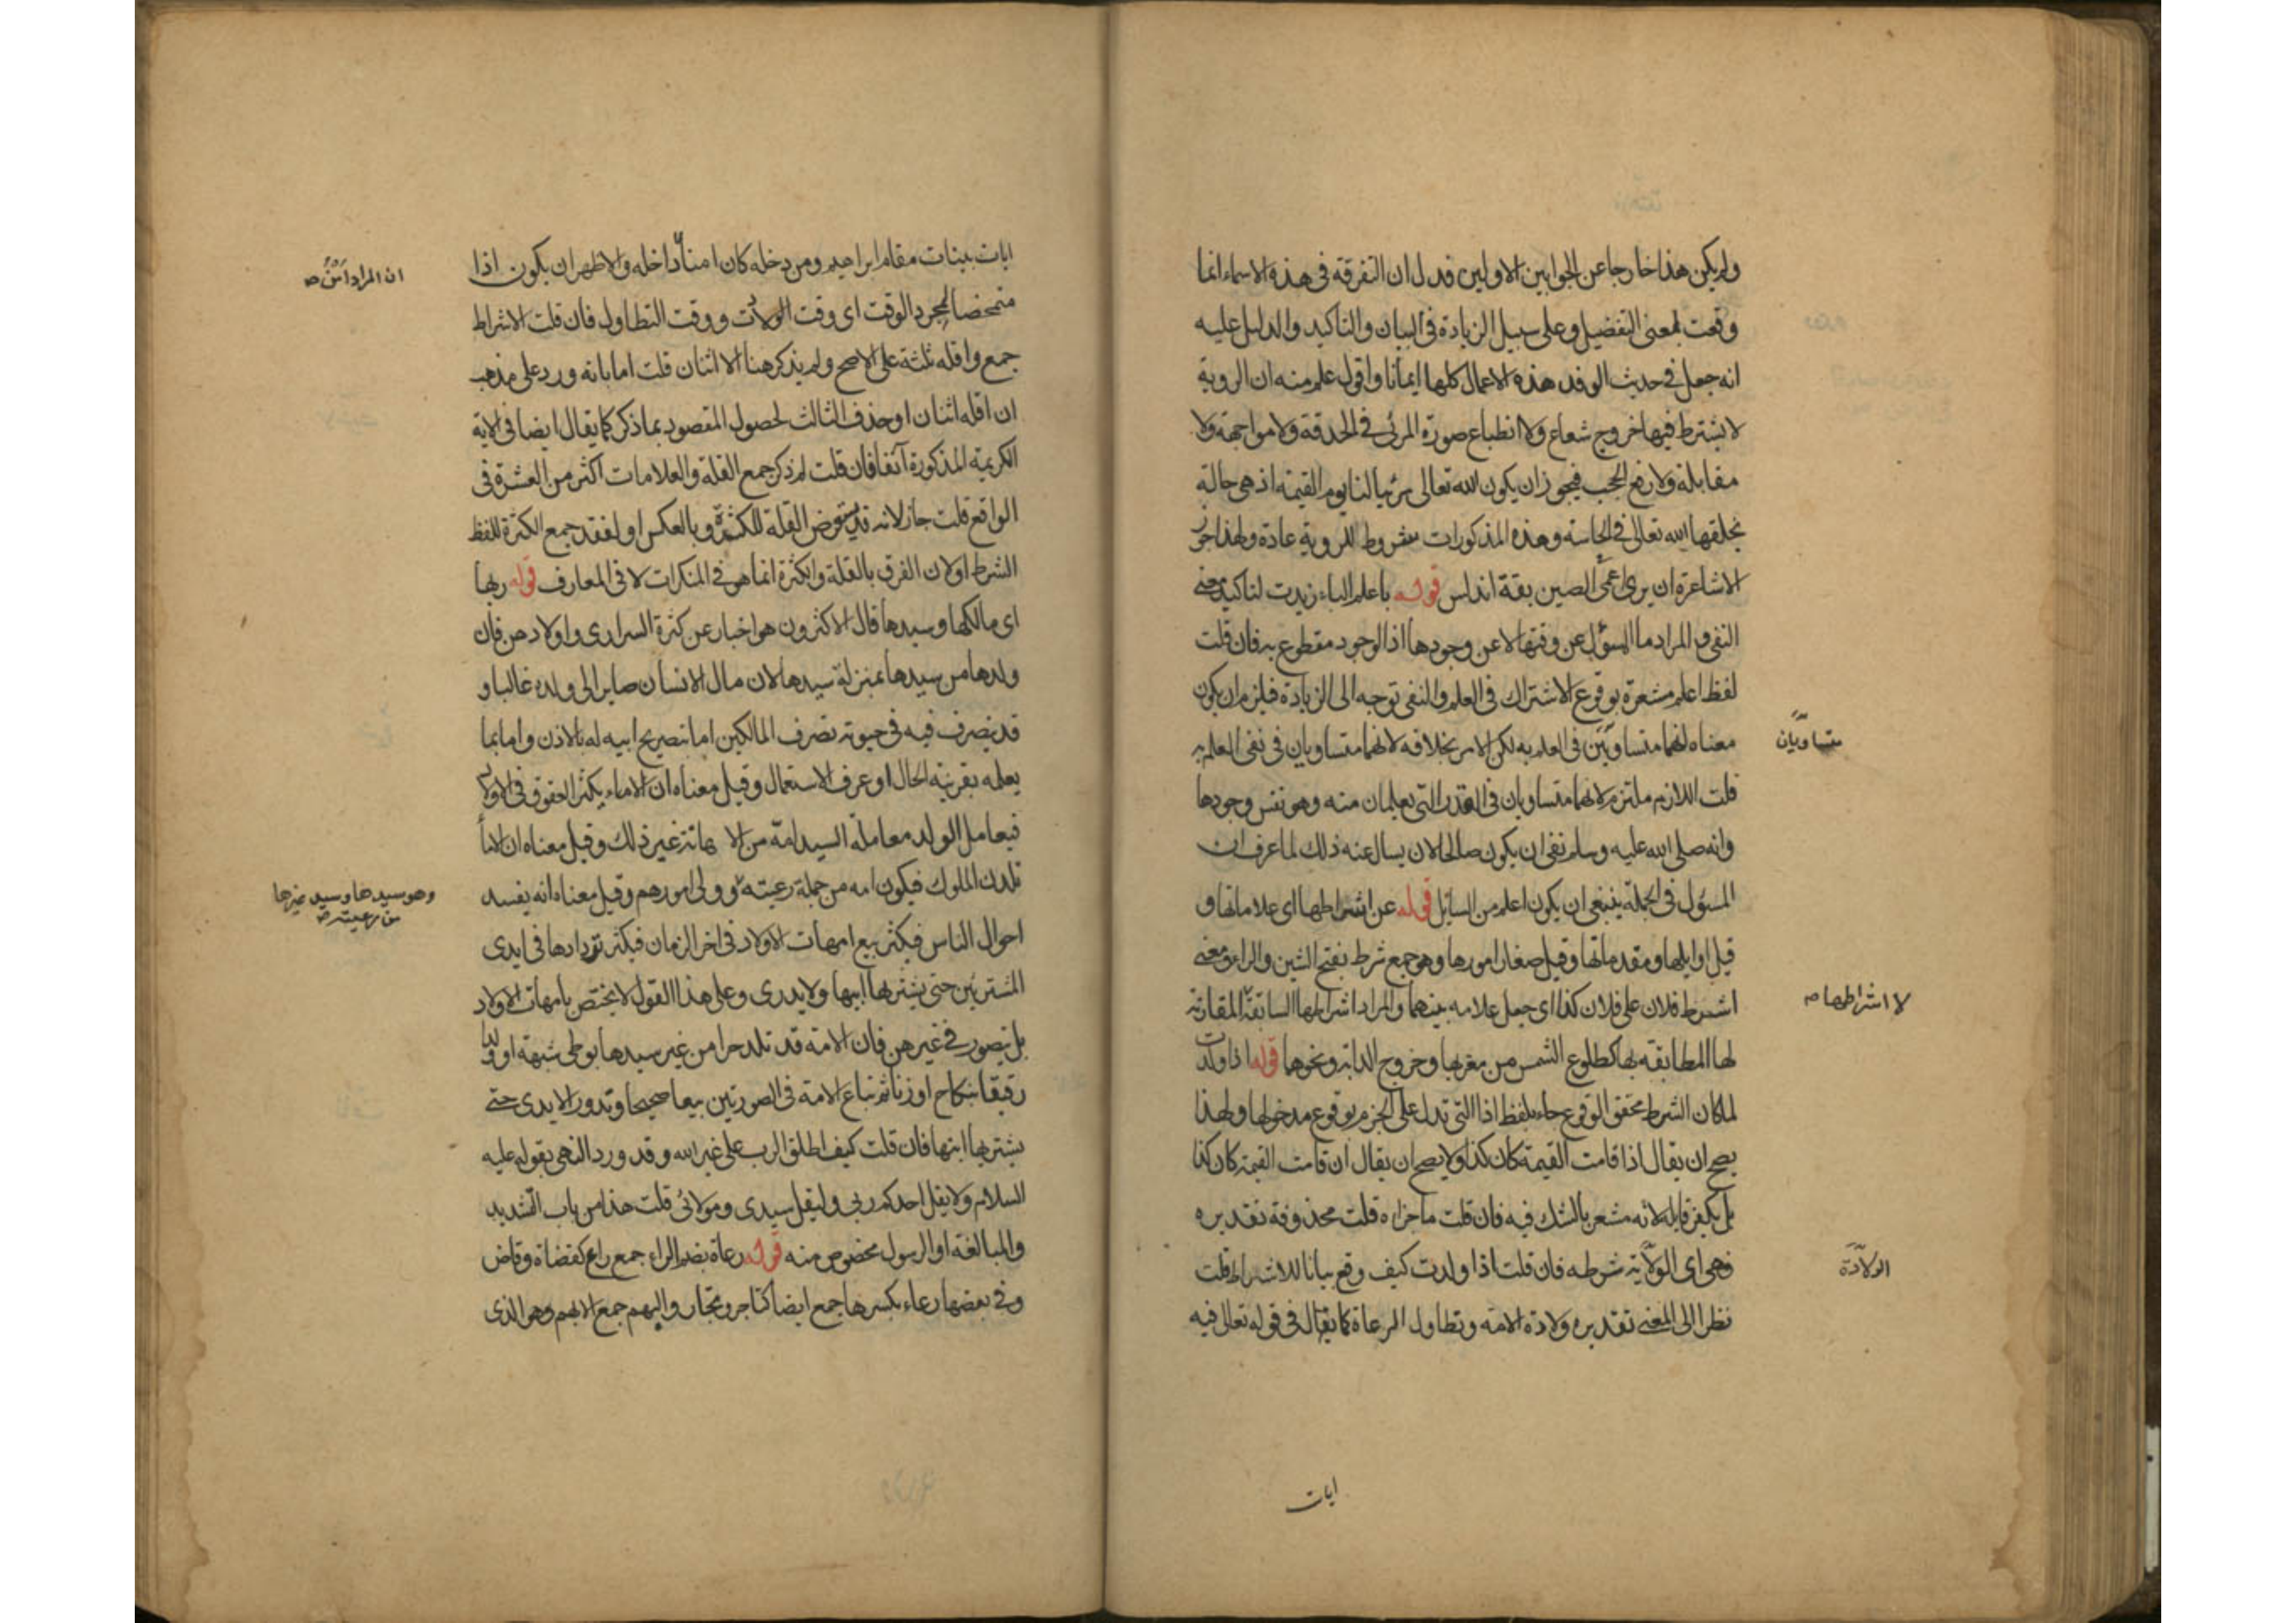 ولم يكن هذا خارجا عن الجوابين الاولين فدل ان التفرقة في هذه الاسماء انما
وقعت لمعنى التفضيل وعلى سبيل الزيادة في البيان والتاكيد والدليل عليه
انه جعل في حديث الوفد هذه الاعمال كلها ايمانا واقول علم منه ان الروية
لا يشترط فيها خروج شعاع ولا انطباع صورة المرئى في الحدقة ولا مواجهة ولا
مقابلة ولا رفع الحجب فيجوز ان يكون الله تعالى مرئيا لنا يوم القيمة اذ هي حالة
يخلقها الله تعالى في الحاسة وهذه المذكورات شروط للروية عادة ولهذا جوز
الاشاعرة ان يرى اعمى الصين بقة اندلس قوله باعلم الباء زيدت لتاكيد معنى
النفى والمراد ما المسؤل عن وقتها لا عن وجودها اذ الوجود مقطوع به فان قلت
لفظ اعلم مشعرة بوقوع الاشتراك في العلم والنفى توجه الى الزيادة فيلزم ان يكون
معناه انهما متساويين في العلم به لكن الامر بخلافه لانهما متساويان في نفى العلم به
متساويان
قلت اللازم ملتزم لانهما متساويان في القدر التى يعلمان منه وهو نفس وجودها
وانه صلى الله عليه وسلم نفى ان يكون صالحا لان يسال عنه ذلك لما عرف ان
المسؤل في الجملة ينبغى ان يكون اعلم من السايل قوله عن اشراطها اى علاماتها و
قيل اوايلها ومقدماتها وقيل صغار امورها وهو جمع شرط بفتح الشين والراء ومعنى
اشرط فلان على فلان كذا اى جعل علامه بينهما والمراد اشراطها السابقة المقارنة
لا اشراطها صه
لها المطابقه بها كطلوع الشمس من مغربها وخروج الدابة ونحوها قوله اذا ولدت
لما كان الشرط محقق الوقوع جاء بلفظ اذا التى تدل على الجزم بوقوع مدخولها ولهذا
يصح ان يقال اذا قامت القيمة كان كذا ولا يصح ان يقال ان قامت القيمة كان كذا
بل يكفر قايله لانه مشعر بالشك فيه فان قلت ما جزاه قلت محذوفة تقديره
فهى اى الولاية شرطه فان قلت اذا ولدت كيف وقع بيانا للاشراط قلت
الولادة
نظرا الى المعنى تقديره ولادة الامة وتطاول الرعاة كما يقال في قوله تعالى فيه
ايات
ايات بينات مقام ابراهيم ومن دخله كان امنا داخله والاظهر ان يكون اذا
ان المراد امن صه
متمحضا لمجرد الوقت اى وقت الولادت ووقت التطاول فان قلت الاشراط
جمع واقله ثلثة على الاصح ولم يذكر هنا الا اثنان قلت اما بانه ورد على مذهب
ان اقله اثنان او حذف الثالث لحصول المقصود بما ذكر كما يقال ايضا في الاية
الكريمة المذكورة آنفا فان قلت لم ذكر جمع القلة والعلامات اكثر من العشرة في
الواقع قلت جاز لانه قد يستقرض القلة للكثرة وبالعكس او لفقد جمع الكثرة للفظ
الشرط او لان الفرق بالقلة والكثرة انما هو في المنكرات لا في المعارف قوله ربها
اى مالكها وسيدها قال الاكثرون هو اخبار عن كثرة السرارى واولادهن فان
ولدها من سيدها بمنزلة سيدها لان مال الانسان صاير الى ولده غالبا و
قد يصرف فيه في حيوته تصرف المالكين اما بتصريح ابيه له بالاذن واما بما
يعلمه بقرينة الحال او عرف الاستعمال وقيل معناه ان الاماء يكثر العقوق في الاولاد
فيعامل الولد معاملة السيد امة من الا هانة غير ذلك وقيل معناه ان الاماء
تلدن الملوك فيكون امه من جملة رعيته و ولى امورهم وقيل معناه انه يفسد
وهو سيدها وسيد غيرها
من رعيته صه
احوال الناس فيكثر بيع امهات الاولاد في اخر الزمان فيكثر تردادها في ايدى
المشتريين حتى يشتريها ابنها ولا يدرى وعلى هذا القول لا يختص بامهات الاولاد
بل يتصور في غيرهن فان الامة قد تلد حرا من غير سيدها بوطى شبهة او ولدا
رقيقا بنكاح او زنا ثم تباع الامة في الصورتين بيعا صحيحا وتدور الايدى حتى
يشتريها ابنها فان قلت كيف اطلق الرب على غير الله وقد ورد النهى بقوله عليه
السلام ولا يقل احدكم ربي وليقل سيدى ومولائى قلت هذا من باب التشديد
والمبالغة او الرسول مخصوص منه قوله رعاة بضم الراء جمع راع كقضاة وقاض
وفي بعضها رعاء بكسرها جمع ايضا كتاجر وتجار والبهم جمع الابهم وهو الذى